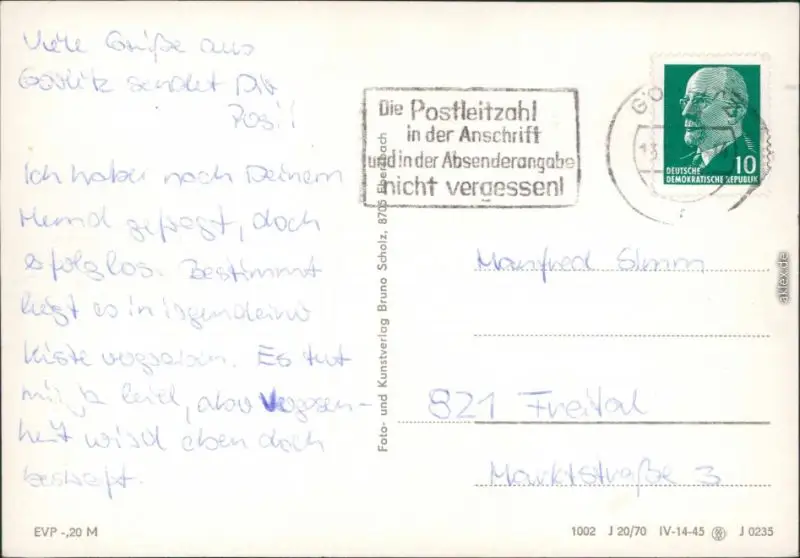 Viele Grüße aus
Görlitz sendet Dir
Posi!
Ich habe nach Deinem
Hemd gefragt, doch
erfolglos. Bestimmt
liegt es in irgendeiner
Kiste vergraben. Es tut
mir ja leid, aber Vergessen-
heit wird eben doch
bestraft.
EVP -,20 M
Foto- und Kunstverlag Bruno Scholz, 8705 Ebersbach
Die Postleitzahl
in der Anschrift
und in der Absenderangabe
nicht vergessen!
GÖ
13
10
DEUTSCHE
DEMOKRATISCHE REPUBLIK
Manfred Simm
821 Freital
Marktstraße 3
1002 J 20/70 IV-14-45 J 0235
akpool.de